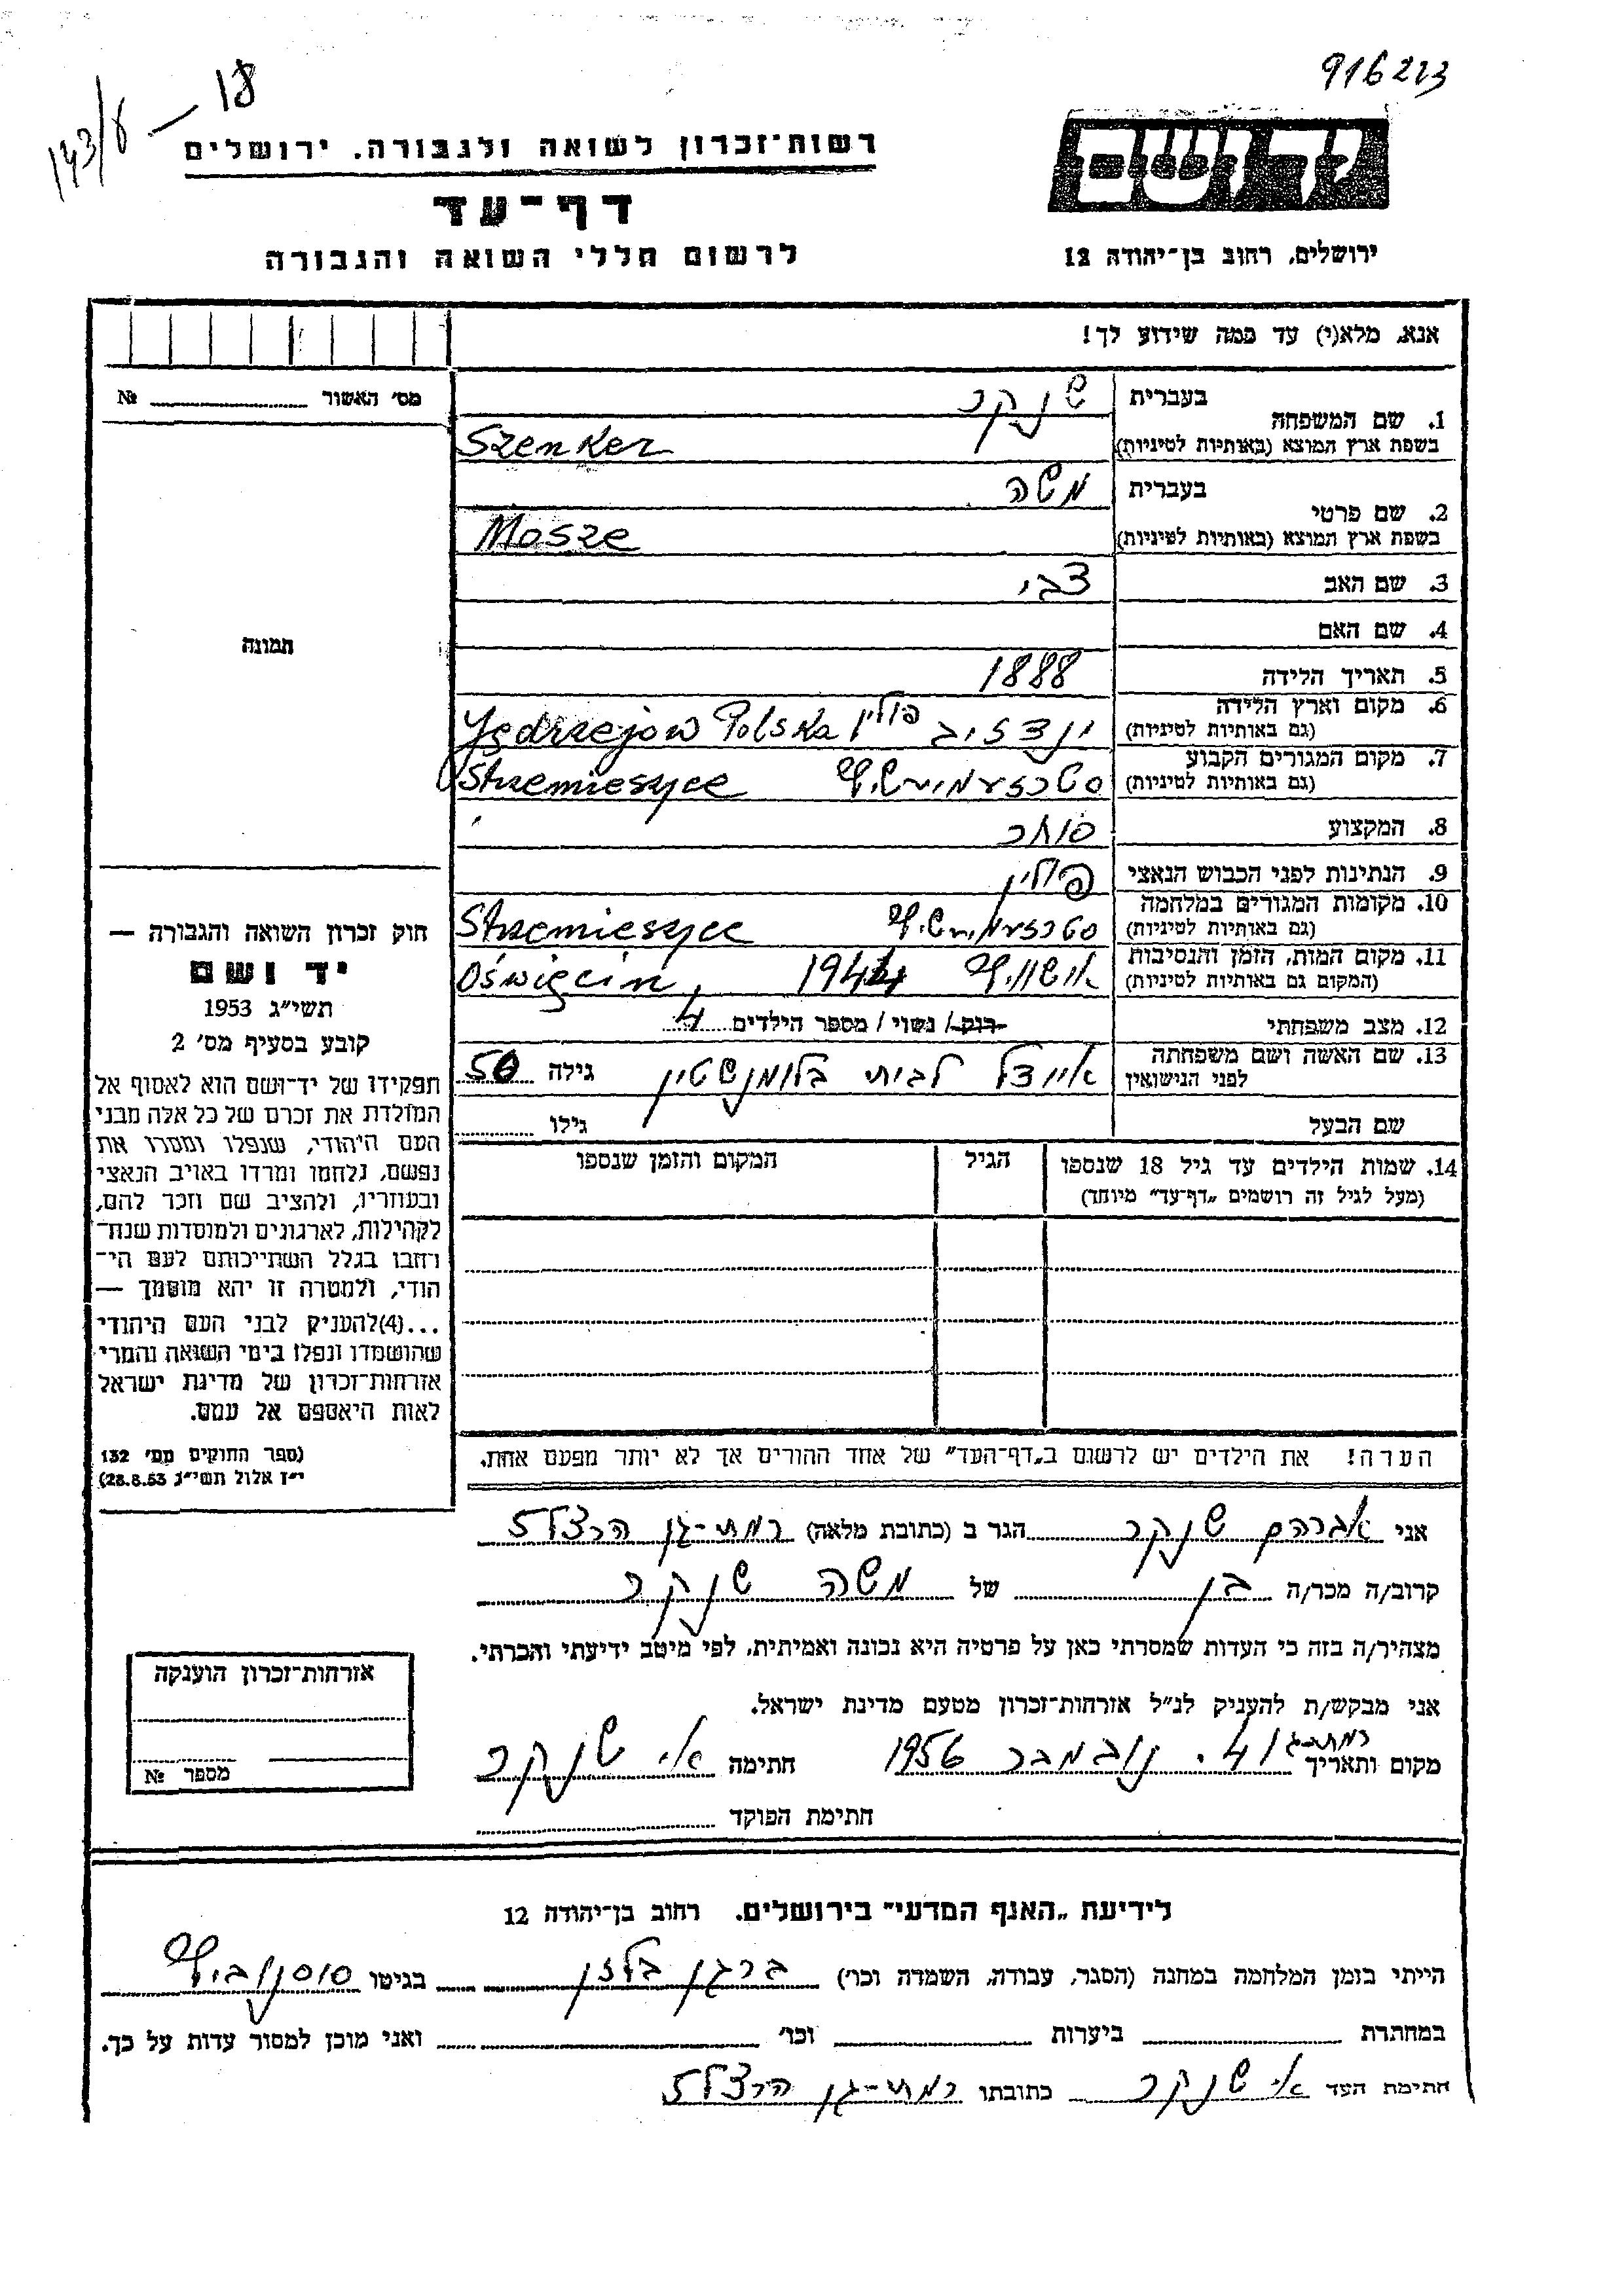 916223
143/8 — 18
יד ושם
רשות־זכרון לשואה ולגבורה, ירושלים
דף־עד
לרשום חללי השואה והגבורה
ירושלים, רחוב בן־יהודה 12
אנא, מלא(י) עד כמה שידוע לך!
מס׳ האשור № 
1. שם המשפחה בעברית שנקר
בשפת ארץ המוצא (באותיות לטיניות) Szenker
2. שם פרטי בעברית משה
בשפת ארץ המוצא (באותיות לטיניות) Mosze
3. שם האב צבי
4. שם האם
תמונה
5. תאריך הלידה 1888
6. מקום וארץ הלידה (גם באותיות לטיניות) ינדזיב פולין Jędrzejow Polska
7. מקום המגורים הקבוע (גם באותיות לטיניות) סטרזעמישיץ Strzemieszyce
8. המקצוע סוחר
9. הנתינות לפני הכבוש הנאצי פולין
10. מקומות המגורים במלחמה (גם באותיות לטיניות) סטרזעמישיץ Strzemieszyce
11. מקום המות, הזמן והנסיבות (המקום גם באותיות לטיניות) אושויץ 1944 Oświęcim,
12. מצב משפחתי רוק/ נשוי/ מספר הילדים 4
13. שם האשה ושם משפחתה לפני הנישואין איידל לבית בלומנשטין גילה 50
שם הבעל גילו
14. שמות הילדים עד גיל 18 שנספו הגיל המקום והזמן שנספו
(מעל לגיל זה רושמים „דף־עד״ מיוחד)
הערה! את הילדים יש לרשום ב„דף־העד״ של אחד ההורים אך לא יותר מפעם אחת.
חוק זכרון השואה והגבורה —
יד ושם
תשי״ג 1953
קובע בסעיף מס׳ 2
תפקידו של יד־ושם הוא לאסוף אל
המולדת את זכרם של כל אלה מבני
העם היהודי, שנפלו ומסרו את
נפשם, נלחמו ומרדו באויב הנאצי
ובעוזריו, ולהציב שם וזכר להם,
לקהילות, לארגונים ולמוסדות שנח־
רחבו בגלל השתייכותם לעם הי־
הודי, ולמטרה זו יהא מוסמך —
...(4)להעניק לבני העם היהודי
שהושמדו ונפלו בימי השואה והמרי
אזרחות־זכרון של מדינת ישראל
לאות היאספם אל עמם.
(ספר החוקים מס׳ 132
י״ז אלול תשי״ג 28.8.53)
אני אברהם שנקר הגר ב (כתובת מלאה) רמת-גן הרצל 5
קרוב/ה מכר/ה בן של משה שנקר
מצהיר/ה בזה כי העדות שמסרתי כאן על פרטיה היא נכונה ואמיתית, לפי מיטב ידיעתי והכרתי.
אני מבקש/ת להעניק לנ״ל אזרחות־זכרון מטעם מדינת ישראל.
מקום ותאריך 4. נובמבר 1956 חתימה א׳ שנקר
חתימת הפוקד
אזרחות־זכרון הוענקה
מספר №
לידיעת „האגף המדעי״ בירושלים. רחוב בן־יהודה 12
הייתי בזמן המלחמה במחנה (הסגר, עבודה, השמדה וכו׳) ברגן בלזן בגיטו סוסנוביץ
במחתרת ביערות וכו׳ ואני מוכן למסור עדות על כך.
חתימת העד א׳ שנקר כתובתו רמת-גן הרצל 5